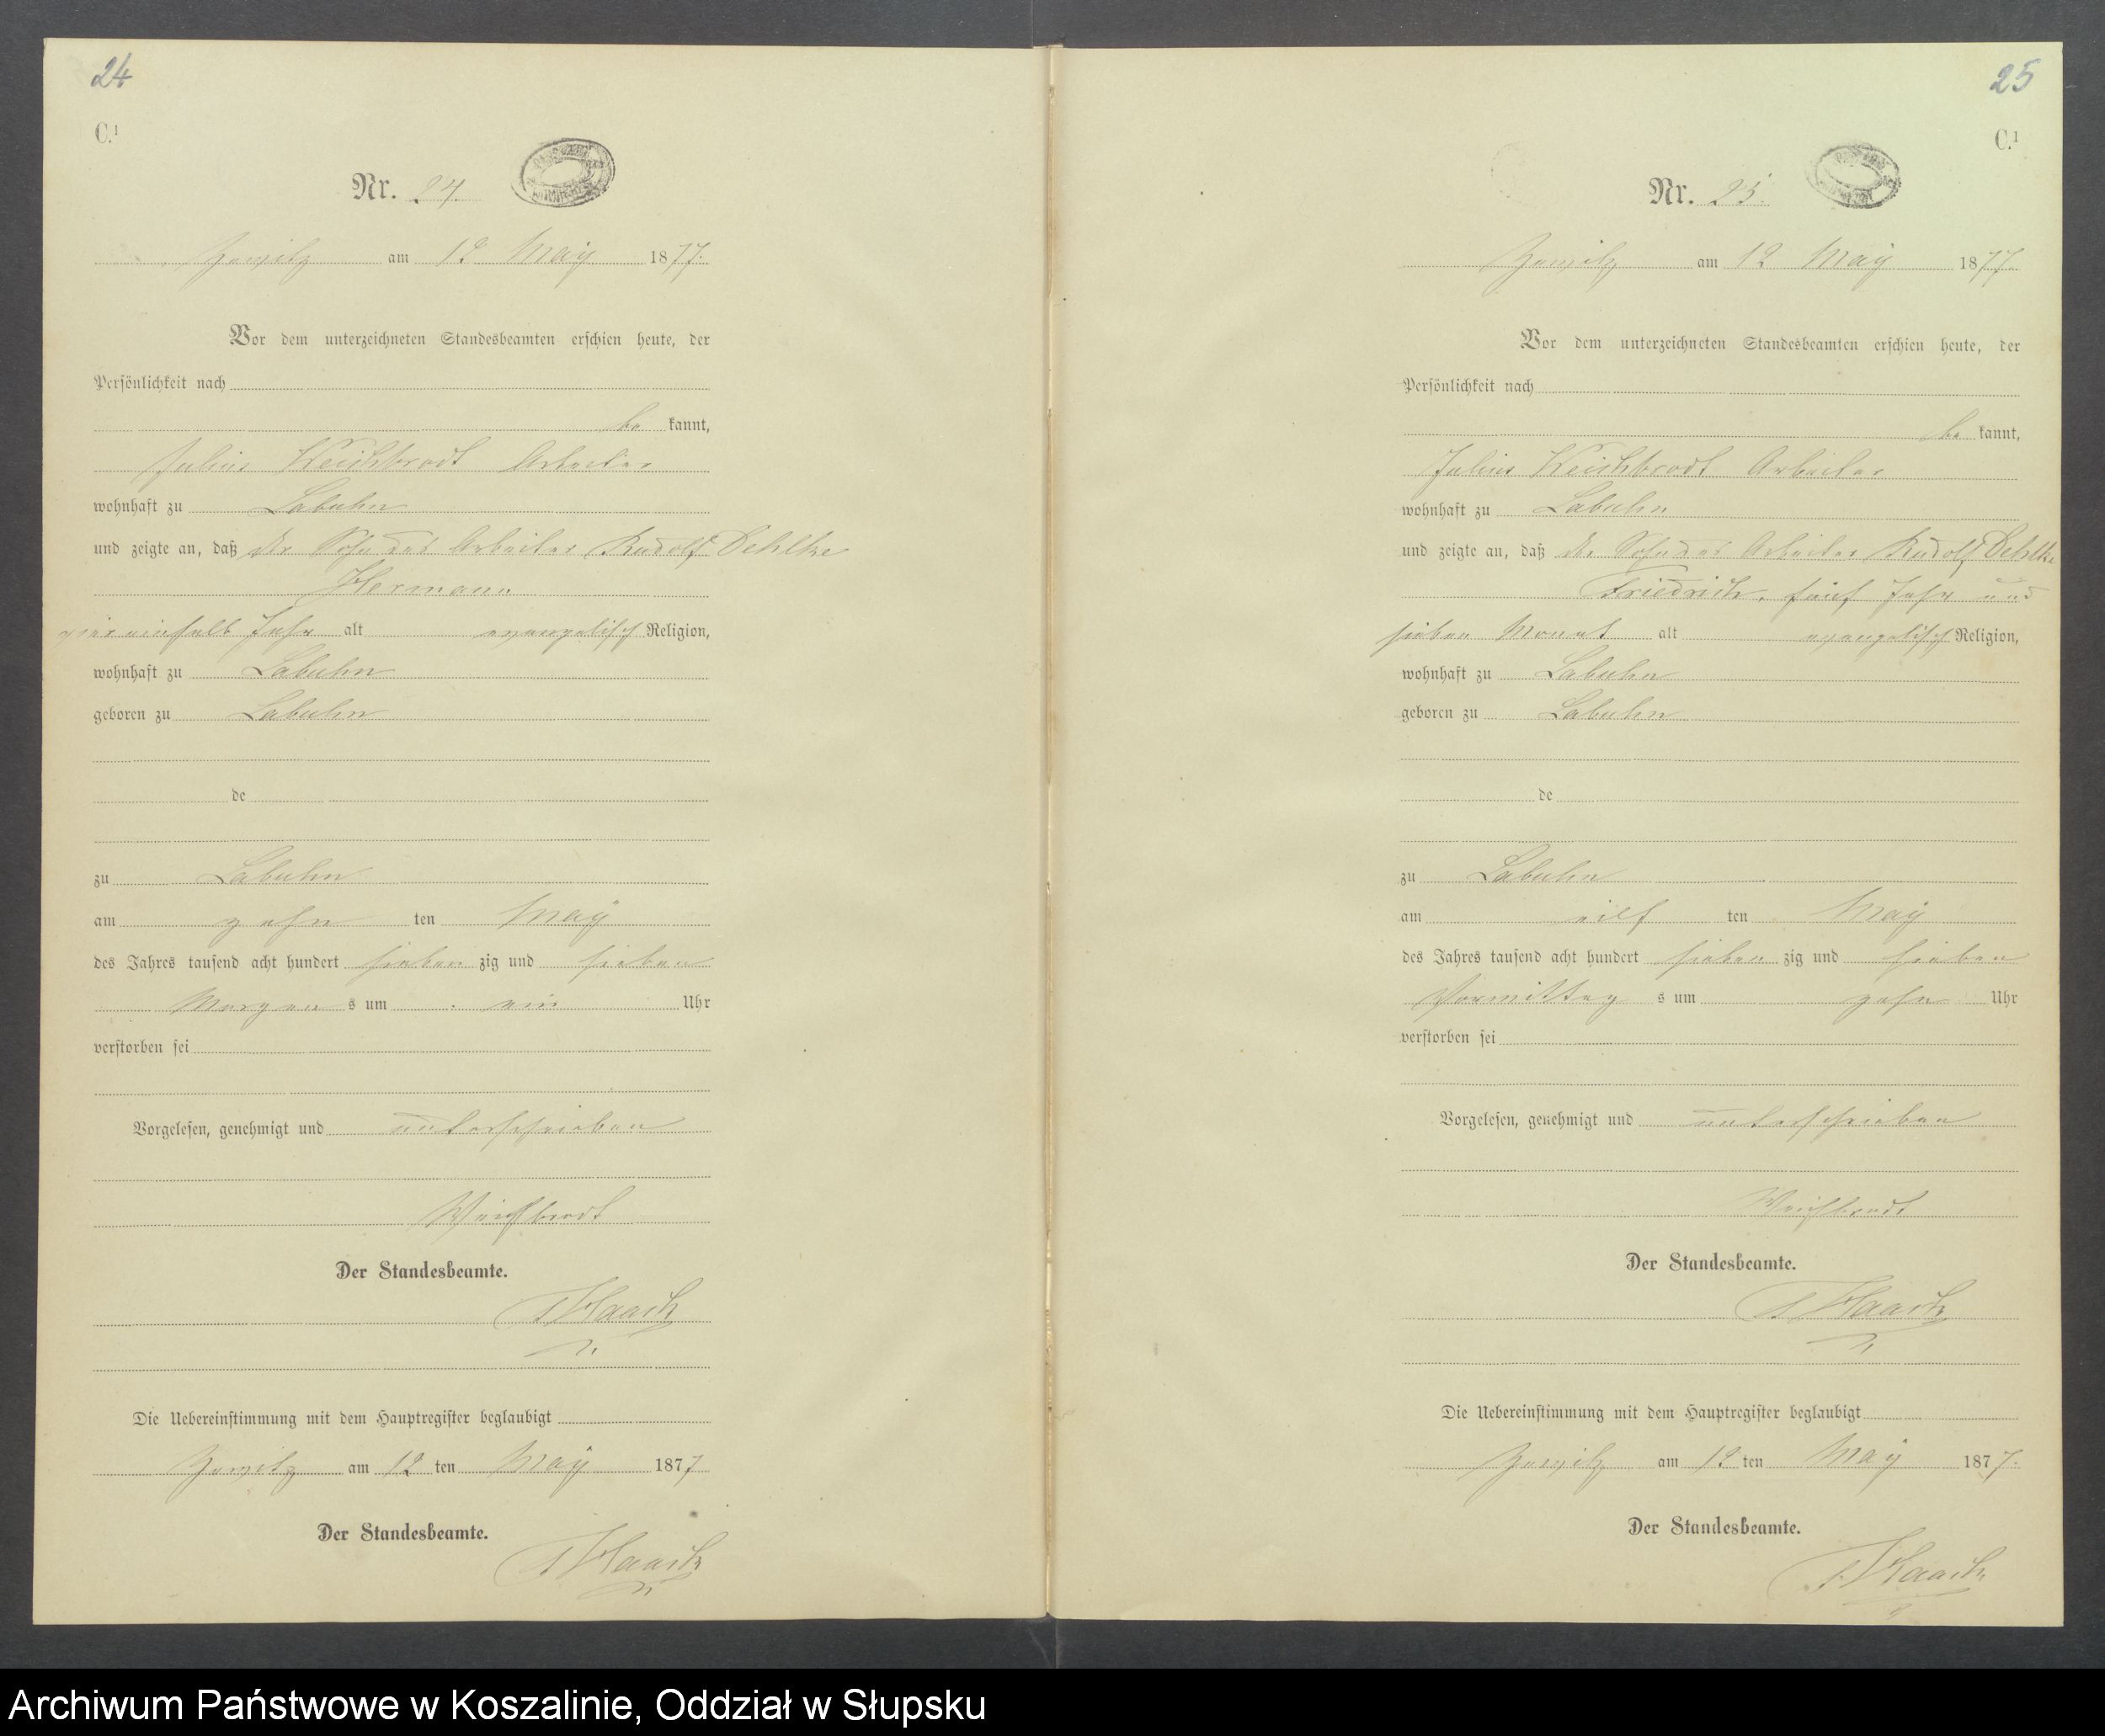 24
C.1
Nr. 24.
Zewitz am 12 May 1877.
Vor dem unterzeichneten Standesbeamten erschien heute, der
Persönlichkeit nach
be kannt,
Julius Weichbrodt Arbeiter
wohnhaft zu Labuhn
und zeigte an, daß der Sohn des Arbeiter Rudolf Dehlke
Hermann
vier einhalb Jahr alt evangelisch Religion,
wohnhaft zu Labuhn
geboren zu Labuhn
de
zu Labuhn
am zehn ten May
des Jahres tausend acht hundert sieben zig und sieben
Morgen s um ein Uhr
verstorben sei
Vorgelesen, genehmigt und unterschrieben
Weichbrodt
Der Standesbeamte.
Haack
Die Uebereinstimmung mit dem Hauptregister beglaubigt
Zewitz am 12 ten May 1877
Der Standesbeamte.
Haack
25
C.1
Nr. 25.
Zewitz am 12 May 1877.
Vor dem unterzeichneten Standesbeamten erschien heute, der
Persönlichkeit nach
be kannt,
Julius Weichbrodt Arbeiter
wohnhaft zu Labuhn
und zeigte an, daß der Sohn des Arbeiter Rudolf Dehlke
Friedrich, fünf Jahr und
sieben Monat alt evangelisch Religion,
wohnhaft zu Labuhn
geboren zu Labuhn
de
zu Labuhn
am eilf ten May
des Jahres tausend acht hundert sieben zig und sieben
Vormittag s um zehn Uhr
verstorben sei
Vorgelesen, genehmigt und unterschrieben
Weichbrodt
Der Standesbeamte.
Haack
Die Uebereinstimmung mit dem Hauptregister beglaubigt
Zewitz am 12 ten May 1877.
Der Standesbeamte.
Haack
Archiwum Państwowe w Koszalinie, Oddział w Słupsku